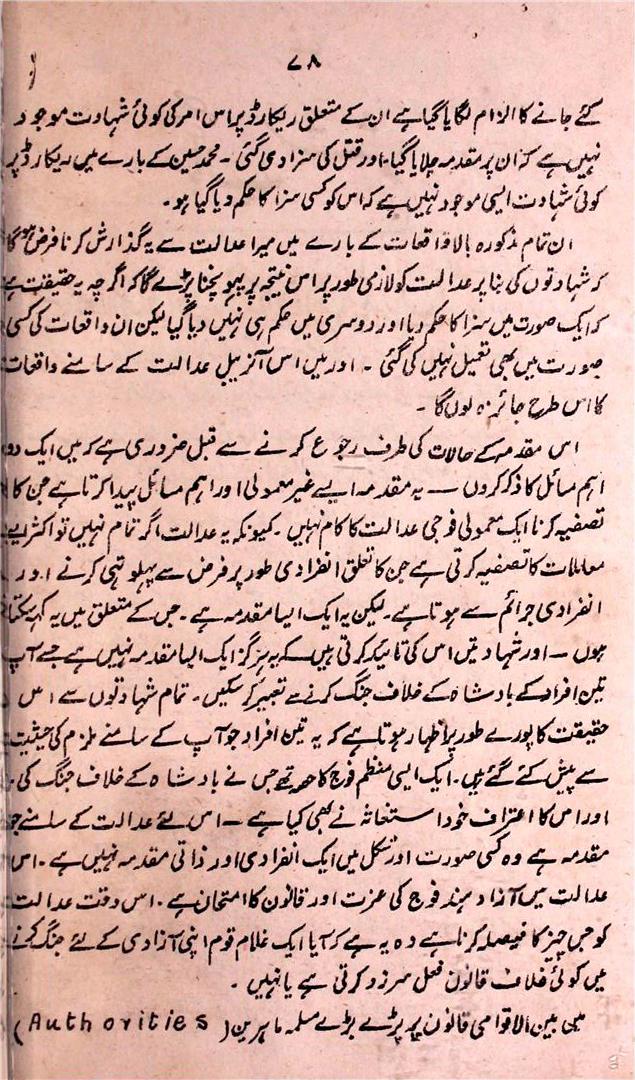 ۷۸
کئے جانے کا الزام لگایا گیا ہے ان کے متعلق ریکارڈ پر اس امر کی کوئی شہادت موجود
نہیں ہے کہ ان پر مقدمہ چلایا گیا۔ اور قتل کی سزا دی گئی ۔ محمد حسین کے بارے میں ریکارڈ پر
کوئی شہادت ایسی موجود نہیں ہے کہ اس کو کسی سزا کا حکم دیا گیا ہو۔
ان تمام مذکورہ بالا واقعات کے بارے میں میرا عدالت سے یہ گذارش کرنا فرض ہوگا
کہ شہادتوں کی بنا پر عدالت کو لازمی طور پر اس نتیجہ پر پہونچنا پڑے گا کہ اگر چہ یہ حقیقت ہے
کہ ایک صورت میں سزا کا حکم دیا اور دوسری میں حکم ہی نہیں دیا گیا لیکن ان واقعات کی کسی
صورت میں بھی تعمیل نہیں کی گئی ۔ اور میں اس آنریبل عدالت کے سامنے واقعات
کا اس طرح جائزہ لوں گا ۔
اس مقدمہ کے حالات کی طرف رجوع کرنے سے قبل ضروری ہے کہ میں ایک دو
اہم مسائل کا ذکر کروں — یہ مقدمہ ایسے غیر معمولی اور اہم مسائل پیدا کرتا ہے جن کا
تصفیہ کرنا ایک معمولی فوجی عدالت کا کام نہیں ۔ کیونکہ یہ عدالت اگر تمام نہیں تو اکثر ایسے
معاملات کا تصفیہ کرتی ہے جن کا تعلق انفرادی طور پر فرض سے پہلو تہی کرنے اور
انفرادی جرائم سے ہوتا ہے۔ لیکن یہ ایک ایسا مقدمہ ہے ۔ جس کے متعلق میں یہ کہہ سکتا
ہوں — اور شہادتیں اس کی تائید کرتی ہیں کہ یہ ہرگز ایک ایسا مقدمہ نہیں ہے جسے آپ
تین افراد کے بادشاہ کے خلاف جنگ کرنے سے تعبیر کر سکیں۔ تمام شہادتوں سے اس
حقیقت کا پورے طور پر اظہار ہوتا ہے کہ یہ تین افراد جو آپ کے سامنے ملزم کی حیثیت
سے پیش کئے گئے ہیں ۔ ایک ایسی منظم فوج کا حصہ تھے جس نے بادشاہ کے خلاف جنگ کی ۔
اور اس کا اعتراف خود استغاثہ نے بھی کیا ہے — اس لئے عدالت کے سامنے جو
مقدمہ ہے وہ کسی صورت اور شکل میں ایک انفرادی اور ذاتی مقدمہ نہیں ہے ۔ اس
عدالت میں آزاد ہند فوج کی عزت اور قانون کا امتحان ہے ۔ اس وقت عدالت
کو جس چیز کا فیصلہ کرنا ہے وہ یہ ہے کہ آیا ایک غلام قوم اپنی آزادی کے لئے جنگ کرنے
میں کوئی خلاف قانون فعل سرزد کرتی ہے یا نہیں ۔
میں بین الاقوامی قانون پر بڑے بڑے مسلمہ ماہرین (Authorities)